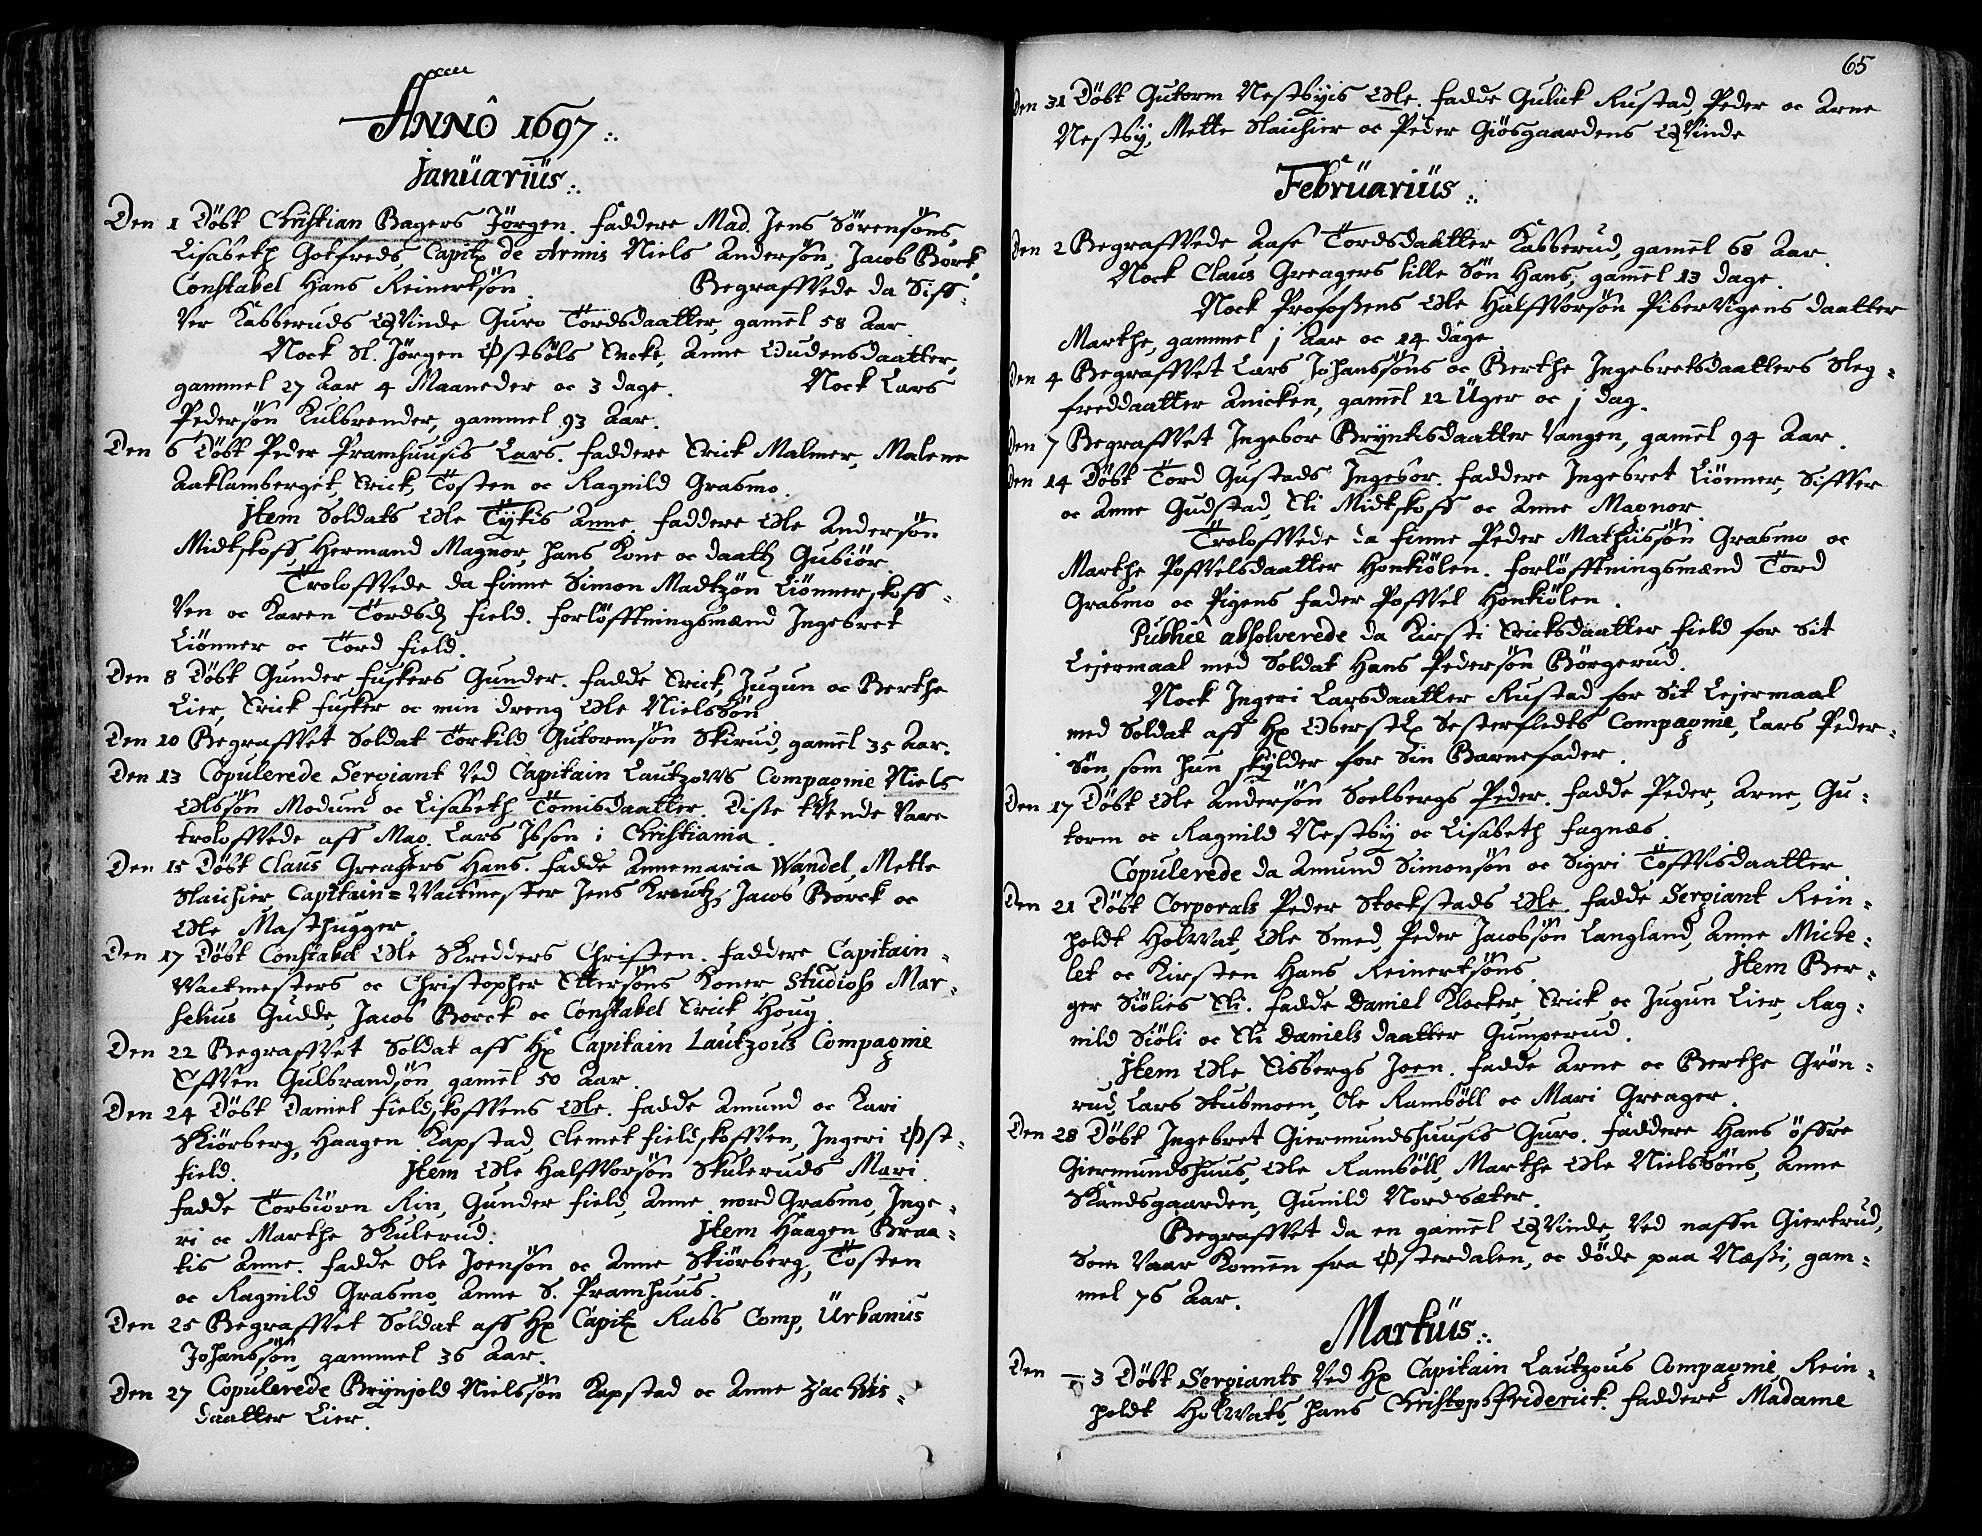 Annô 1697 ·:·
Januarius ·:·
Den 1 Döbt Christian Bagers Jörgen. Faddere Mad. Jens Sörensöns
Lisabeth Gotfreds, Capit: de Armis Niels Andersön, Jacob Borck
Constabel Hans Reinertsön. Begraffvede da Siff-
ver Kabberuds Qvinde Guro Tordsdaatter, gamel 58 Aar.
Nock Sl. Jörgen Østböls Encke, Anne Oudensdaatter,
gammel 27 Aar 4 Maaneder oc 3 dage. Nock Lars
Pedersön Kulbrender, gammel 93 Aar.
Den 6 Döbt Peder Pramhuusis Lars. Faddere Erick Malmer, Malene
Aaklamberget, Erick, Tosten oc Ragnild Grasmo.
Item Soldats Ole Tyskis Anne. Faddere Ole Andersön
Midtskoff, Hermand Magnor, hans Kone oc daatt: Gubiör.
Troloffvede da Finne Simon Madtzön Liönner skoff-
ven oc Karen Tordsd: Field. Forlöfftningsmænd Ingebret
Liönner oc Tord Field.
Den 8 Döbt Gunder Fuskers Gunder. Fadde Erick, Jugun oc Berthe
Lier, Erick Fusker oc min dreng Ole Nielssön
Den 10 Begraffvet Soldat Torkild Gutormsön Skirud, gamel 35 Aar.
Den 13 Copulerede Sergiant ved Capitain Lautzows Compagnie Niels
Olssön Modum oc Lisabeth Tömisdaatter. Disse tvende vare
troloffvede aff Mag. Lars Ibsön i Christiania.
Den 15 Döbt Claus Greagers Hans. Fadde Annemaria Wandel, Mette
Slaichier, Capitain=Wacktmester Jens Kreutz, Jacob Borck oc
Ole Masthugger.
Den 17 Döbt Constabel Ole Skredders Christen. Faddere Capitain-
Wactmesters oc Christopher Ottersöns Koner, Studios: Mar-
selius Gudde, Jacob Borck oc Constabel Erick Houg.
Den 22 Begraffvet Soldat aff H: Capitain Lautzous Compagnie
Effven Gulbrandsön, gamel 50 Aar.
Den 24 Döbt Daniel Fieldskoffvens Ole. Fadde Amund oc Kari
Skiörberg, Haagen Kapstad, Clemet Fieldskoffven, Ingeri Øst-
field. Item Ole Halffvorsön Skuleruds Mari.
Fadde Torbiörn Rin, Gunder Field, Anne nord Grasmo, Inge-
ri oc Marthe Skulerud. Item Haagen Braa-
tis Anne. Fadde Ole Joensön oc Anne Skiörberg, Tosten
oc Ragnild Grasmo, Anne S. Pramhuus.
Den 25 Begraffvet Soldat aff H: Capit: Rass Comp, Urbanus
Johanssön, gammel 36 Aar.
Den 27 Copulerede Brynjold Nielssön Kapstad oc Anne Zachris-
daatter Lier.
65
Den 31 Döbt Gutorm Nestbyis Ole. Fadde Gulick Rustad, Peder oc Arne
Nestby, Mette Slaichier oc Peder Giösgaardens Qvinde
Februarius ·:·
Den 2 Begraffvede Aase Tordsdaatter Kabberud, gamel 68 Aar.
Nock Claus Greagers lille Sön Hans, gamel 13 dage.
Nock Profossens Ole Halffvorsön Pibervigens daatter
Marthe, gammel 1 Aar oc 14 dage.
Den 4 Begraffvet Lars Johanssöns oc Berthe Ingebretsdaatters Sleg-
freddaatter Anicken, gamel 12 Uger oc 1 dag.
Den 7 Begraffvet Ingebor Bryntisdaatter Vangen, gamel 94 Aar.
Den 14 Döbt Tord Gustads Ingebor. Faddere Ingebret Liönner, Siffver
oc Anne Gudstad, Eli Midtskoff oc Anne Magnor.
Troloffvede da Finne Peder Mathissön Grasmo oc
Marthe Poffvelsdaatter Honkiölen. Forlöfftningsmænd Tord
Grasmo oc Pigens Fader Poffvel Honkiölen.
Publicè absolverede da Kirsti Ericksdaatter Field for Sit
Lejermaal med Soldat Hans Pedersön Börgerud.
Nock Ingeri Larsdaatter Rustad for Sit Lejermaal
med Soldat aff H: Oberst L: Sesterfledts Compagnie, Lars Peder-
sön som hun skylder for Sin Barnefader.
Den 17 Döbt Ole Andersön Soelbergs Peder. Fadde Peder, Arne, Gu-
torm oc Ragnild Nestby oc Lisabeth Fagnæs.
Copulerede da Amund Simonsön oc Sigri Toffvisdaatter.
Den 21 Döbt Corporals Peder Stockstads Ole. Fadde Sergiant Rein-
holdt Holwat, Ole Smed, Peder Jacobsön Langland, Anne Micke-
let oc Kirsten Hans Reinertsöns. Item Ber-
ger Siölies Eli. Fadde Daniel Klocker, Erick oc Jugun Lier, Rag-
nild Siöli oc Eli Daniels daatter Gumperud.
Item Ole Eisbergs Joen. Fadde Arne oc Berthe Grön-
rud, Lars Stubmoen, Ole Ramböll oc Mari Greager.
Den 28 Döbt Ingebret Giermundshuusis Guro. Faddere Hans öffre
Giermundshuus, Ole Ramböll, Marthe Ole Nielssöns, Anne
Skandsgaarden, Gunild Nordsæter.
Begraffvet da en gamel Qvinde ved naffn Giertrud,
Som vaar komen fra Østerdalen, oc döde paa Næssi, gam-
mel 76 Aar.
Martius ·:·
Den 3 Döbt Sergiants ved H: Capitain Lautzous Compagnie Rein-
holdt Holwats, hans Christoph Friderick. Faddere Madame